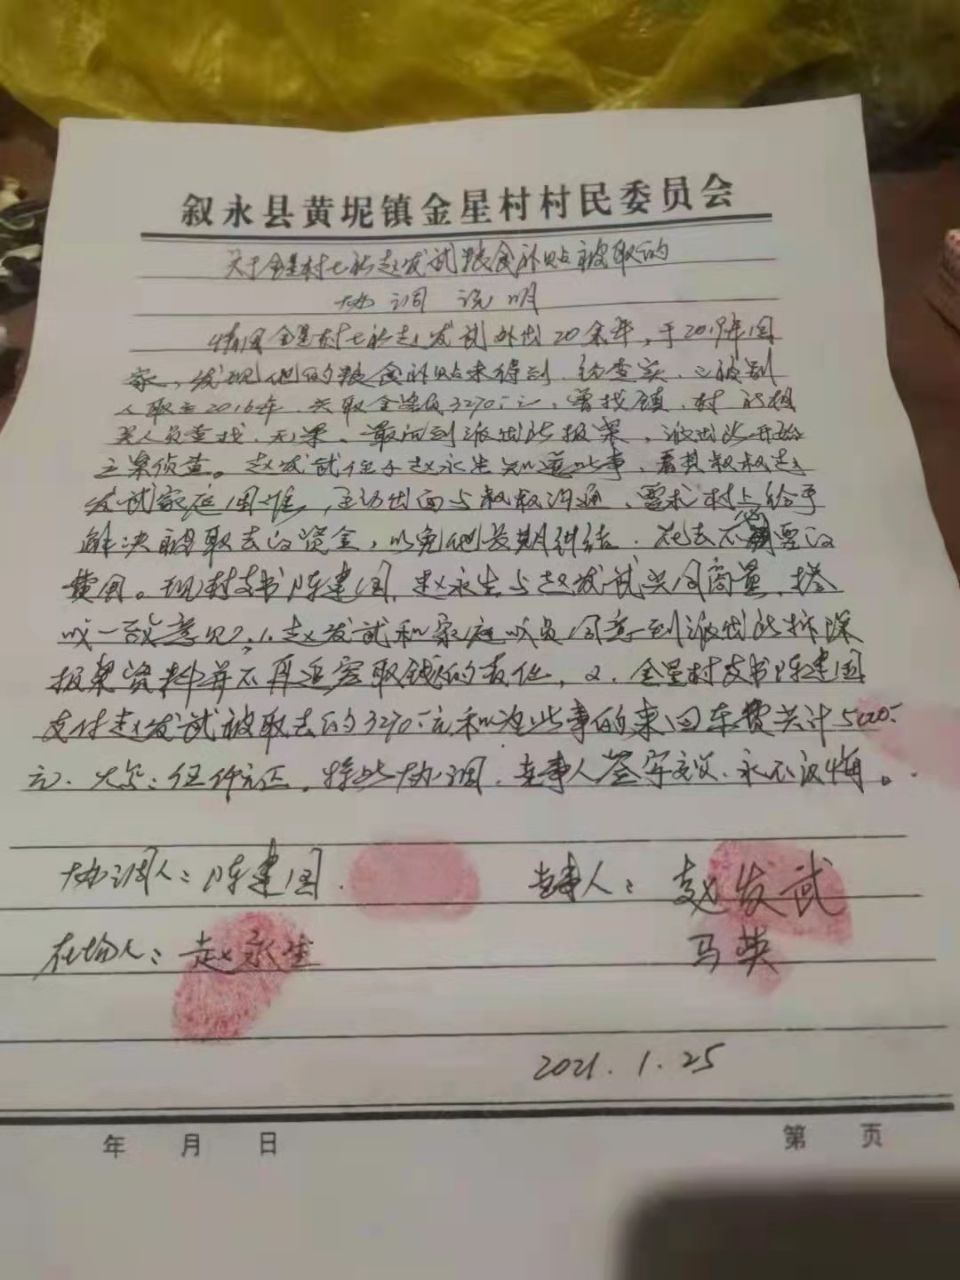 叙永县黄坭镇金星村村民委员会
关于金星村七社赵发武粮食补贴被取的
协调说明
金星村七社赵发武外出20余年，于2019年回
家，发现他的粮食补贴未得到，经查实，已被别
人取至2016年，共取金额3270元，曾找镇、村的相
关人员查找，无果。最后到派出所报案，派出所开始
立案侦查。赵发武侄子赵永生知道此事，看其叔叔赵
发武家庭困难，主动出面与叔叔沟通，要求村上给予
解决被取去的资金，以免他长期纠结，花去不必要的
费用。现村支书陈建国，赵永生与赵发武共同商量，搭
成一致意见，1.赵发武和家庭成员同意到派出所拆除
报案资料并不再追究取钱的责任，2.金星村支书陈建国
支付赵发武被取去的3270元和为此事的来回车费共计5000
元．大写：伍仟元正。特此协调，当事人签字交议，永不议悔。
协调人：陈建国
当事人：赵发武
在场人：赵永生
马英
2021.1.25
年 月 日
第 页